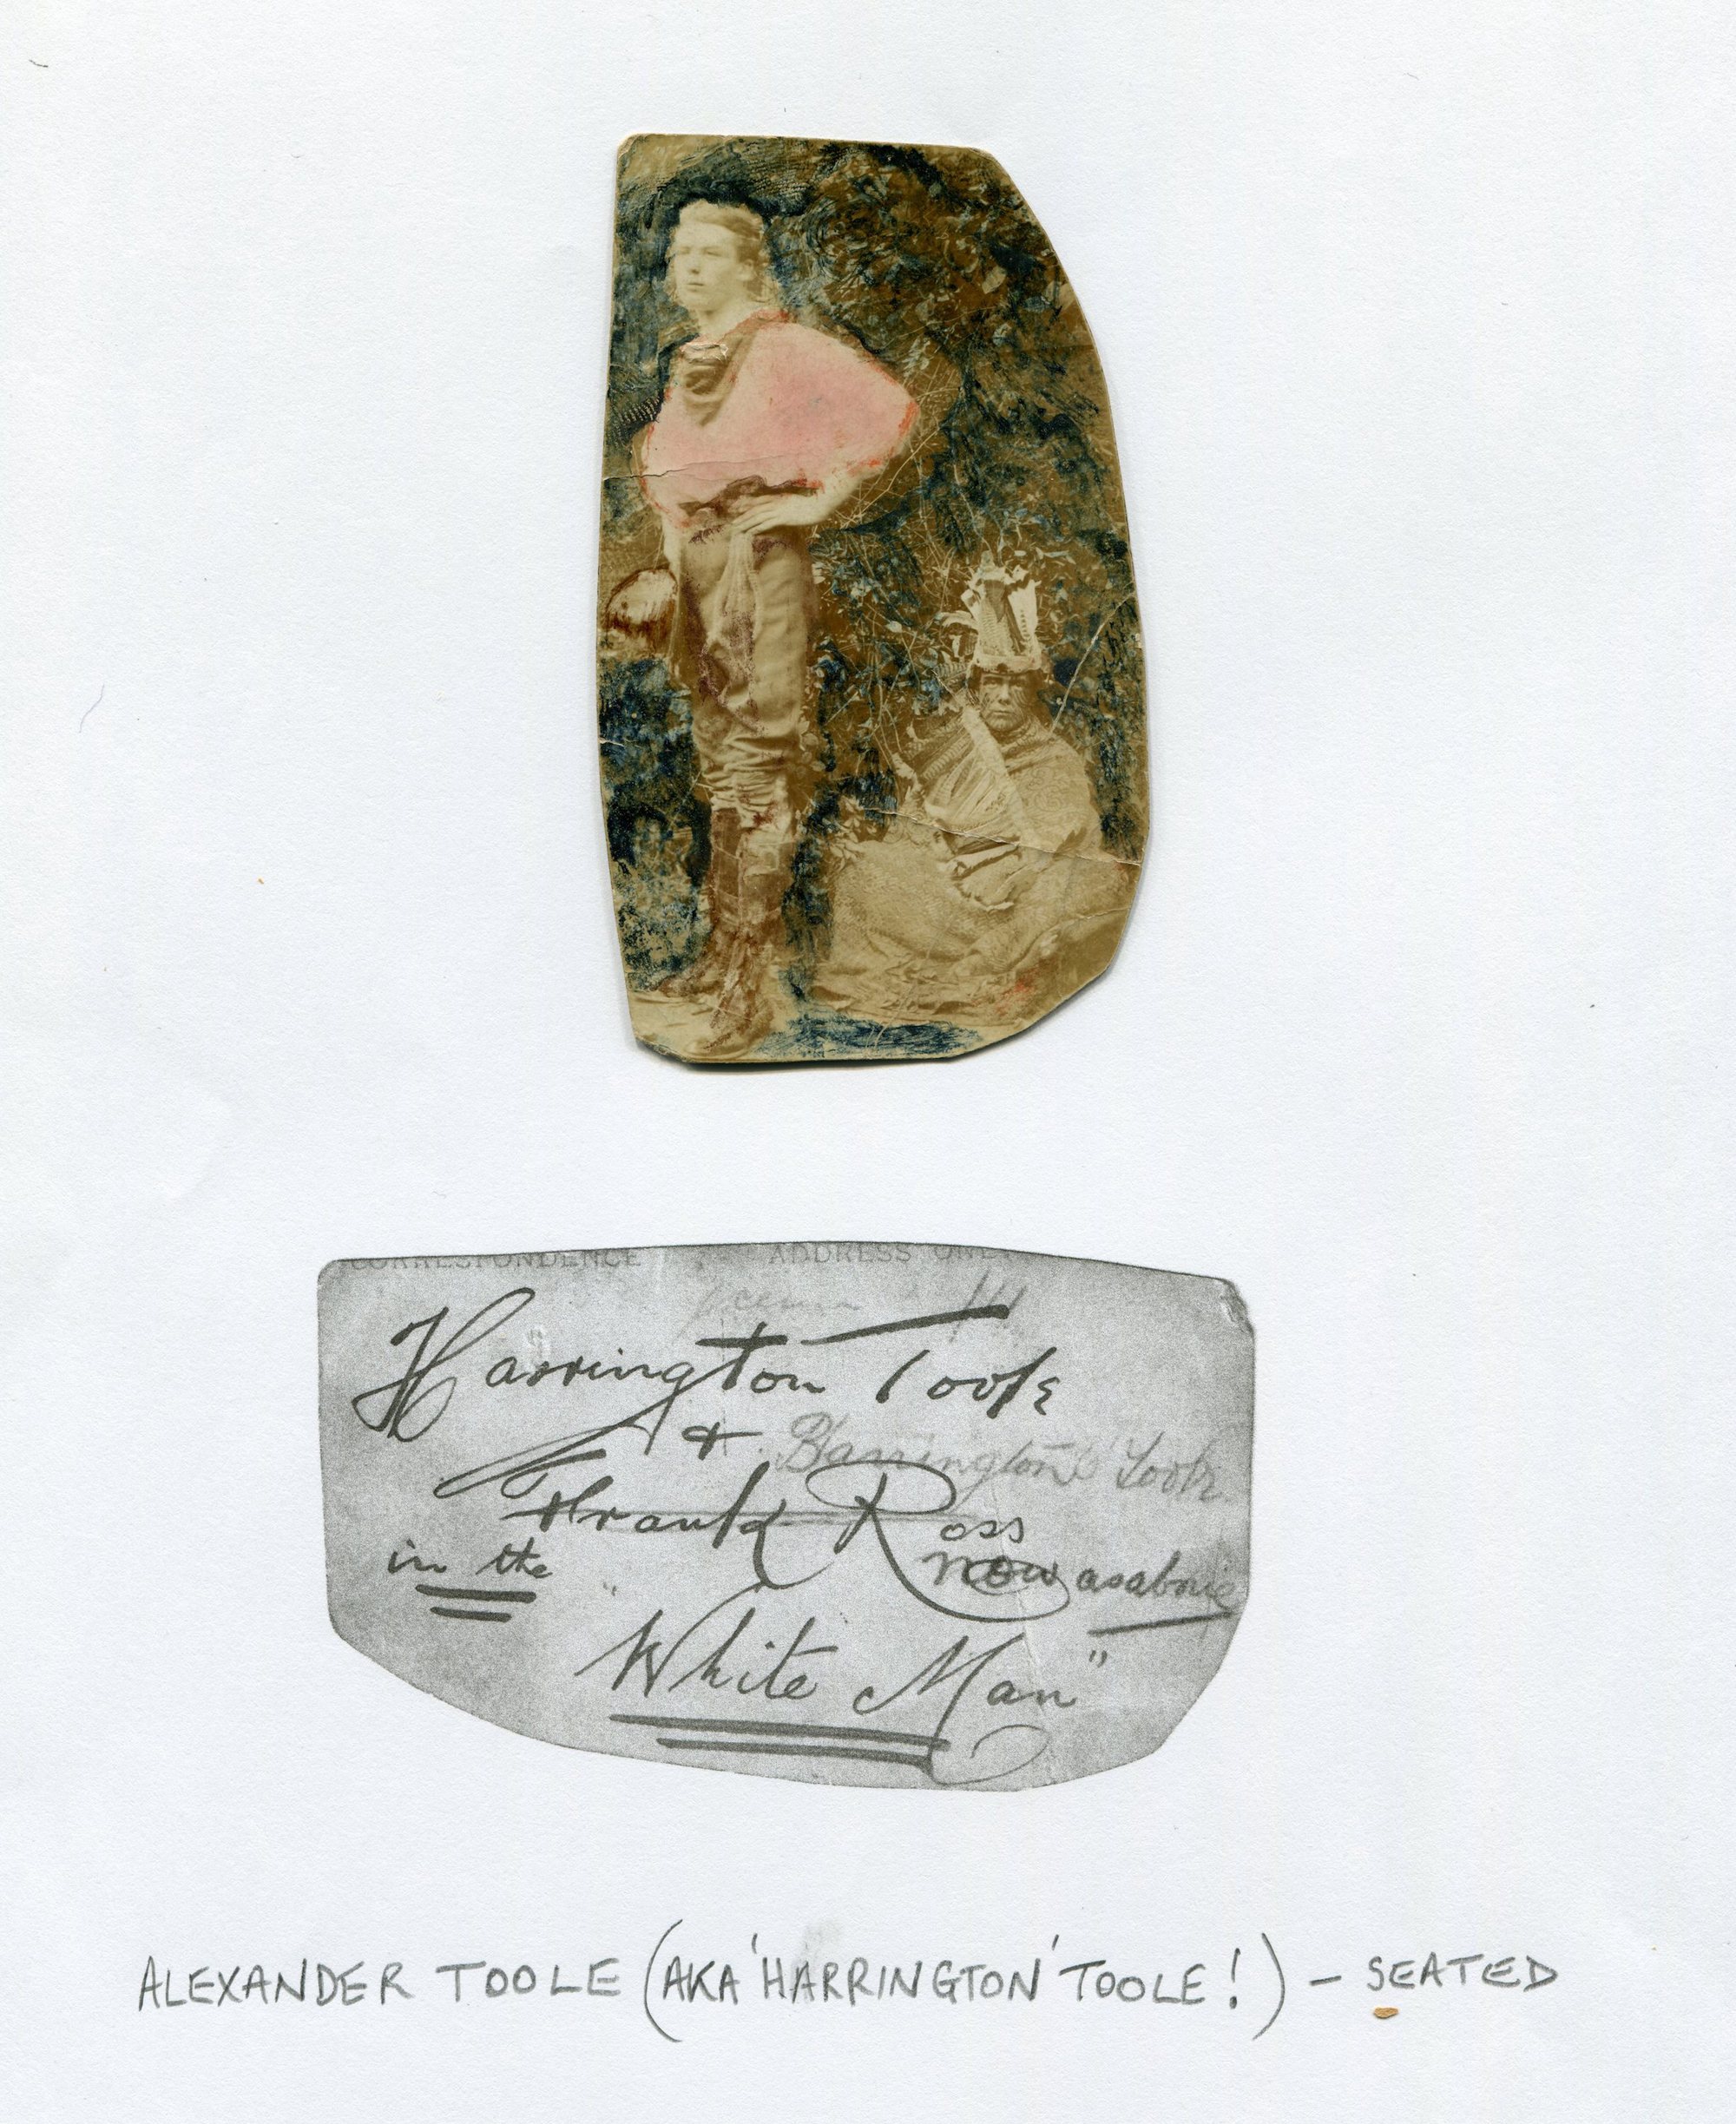 CORRESPONDENCE ADDRESS ONL
Harrington Toole
&
Harrington Toole
Frank Ross
in the
now as above
"White Man"
ALEXANDER TOOLE (AKA 'HARRINGTON' TOOLE!) - SEATED